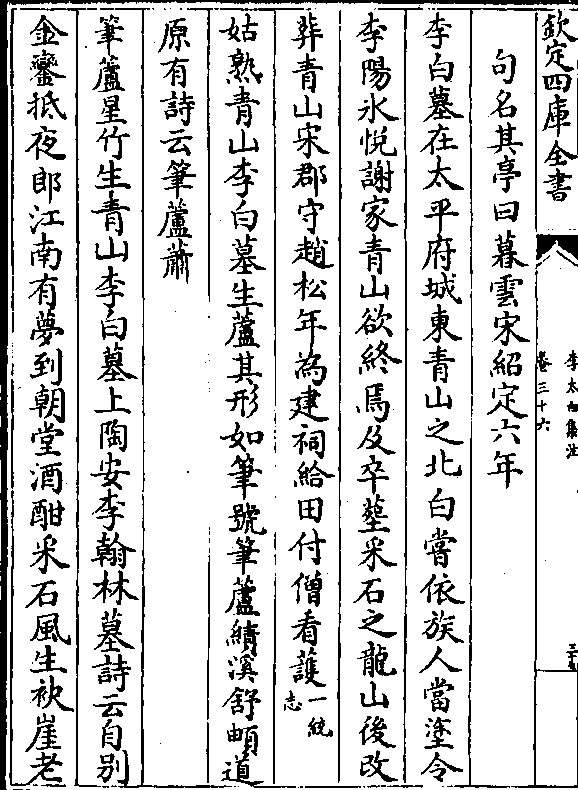 欽定四庫全書
李太白集注
卷三十六
句名其亭曰暮雲宋紹定六年
李白墓在太平府城東青山之北白嘗依族人當塗令
李陽冰悅謝家青山欲終焉及卒塟采石之龍山後改
葬青山宋郡守趙松年為建祠給田付僧看護一統志
姑熟青山李白墓生蘆其形如筆號筆蘆績溪舒頔道
原有詩云筆蘆蕭
筆蘆星竹生青山李白墓上陶安李翰林墓詩云自别
金鑾抵夜郎江南有夢到朝堂酒酣采石風生袂崖老